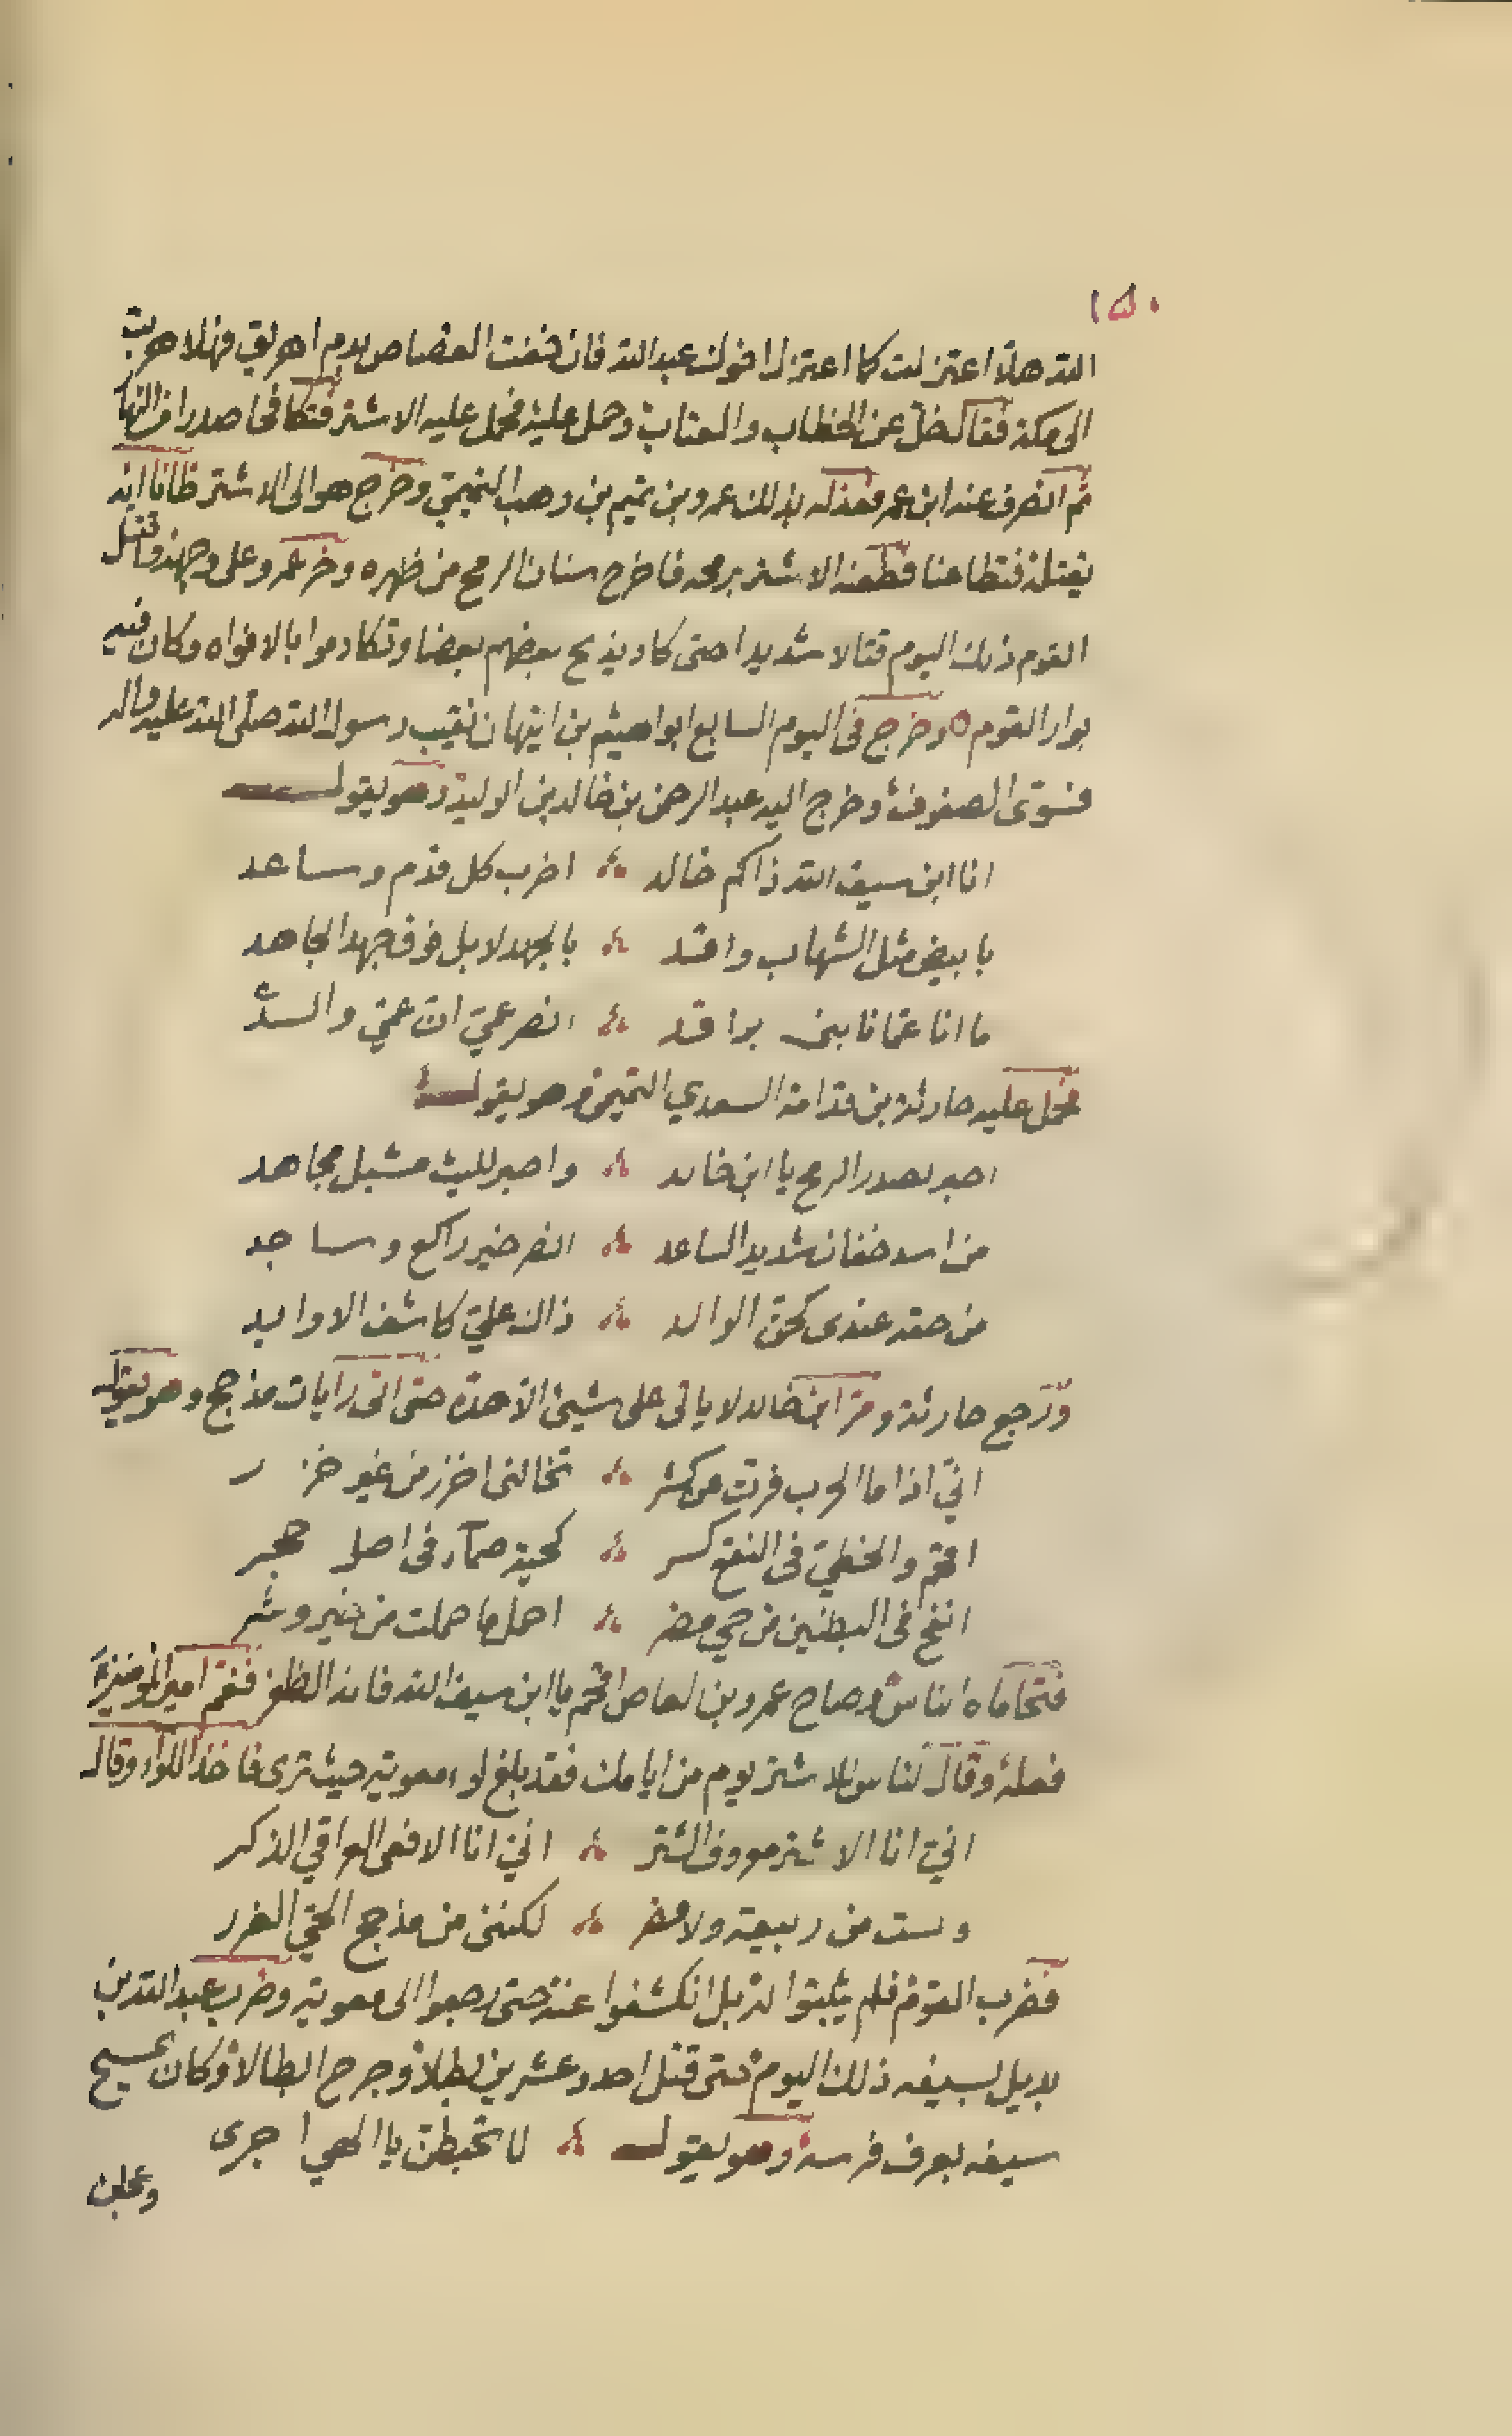 ١٥٠
الله هلا اعتزلت كما اعتزل اخوك عبدالله فان خفت القصاص بدم اهريق فهلا هربت
الى مكة فقال خل عن الخطاب والعتاب وحمل عليه فحمل عليه الاشتر فتكافحا صدرا من النهار
ثم انصرف عنه ابن عمر فعذله بذلك عمرو بن تميم بن وهب التميمي وخرج هو الى الاشتر ظانا انه
يقتله فتطاعنا فطعنه الاشتر برمحه فاخرج سنان الرمح من ظهره وخر عمرو على وجهه وقاتل
القوم ذلك اليوم قتالا شديدا حتى كاد يذبح بعضهم بعضا وتكادموا بالافواه وكان فيه
بوار القوم ٥ وخرج فى اليوم السابع ابو اهيثم بن ايتهان نقيب رسول الله صلى الله عليه واله
فسوى الصفوف وخرج اليه عبد الرحمن بن خالد بن الوليد وهو يقول
انا ابن سيف الله ذاكم خالد ؞ اضرب كل قدم وساعد
بابيض مثل الشهاب واقد ؞ بالجهد لا بل فوق جهد الجاهد
ما انا عما نابنى براقد ؞ انصر عمي ان عمي والد
فحمل عليه حارثة بن قدامة السعدي التميمى وهو يقول
اصبر لصدر الرمح يا ابن خالد ؞ واصبر لليث مشبل مجاهد
من اسد خفان شديد الساعد ؞ انصر خير راكع وساجد
من حقه عندى كحق الوالد ؞ ذاك علي كاشف الاوابد
ورجع حارثة ومر ابن خالد لا ياتى على شيئ الا هده حتى اتى رايات مذحج وهو يقول
اني اذا ما الحرب فرت عن كشر ؞ تخالنى اخزر من غير خزر
اقحم والخطي فى النقع كسر ؞ كحية صماء فى اصل حجر
انفخ فى البطنين من حي مضر ؞ احمل ما حملت من خير وشر
فتحاماه الناس وصاح عمرو بن لعاص اقحم يا ابن سيف الله فانه الظفر فغم امير المومنين
فعله وقال لناس للاشتر يوم من ايامك فقد بلغ لواء معوية حيث ترى فاخذ اللواء وقال
اني انا الاشتر معروف الشتر ؞ اني انا الافعى العراقي الذكر
ولست من ربيعة ولا مضر ؞ لكننى من مذحج الحي الغرر
فضرب القوم فلم يثبتوا له بل انكشفوا عنه حتى رجعوا الى معوية وضرب عبد الله بن
بديل بسيفه ذلك اليوم حتى قتل احد وعشرين بطلا وجرح ابطالا وكان يمسح
سيفه بعرف فرسه وهو يقول ؞ لا تحبطن يا الهي اجرى